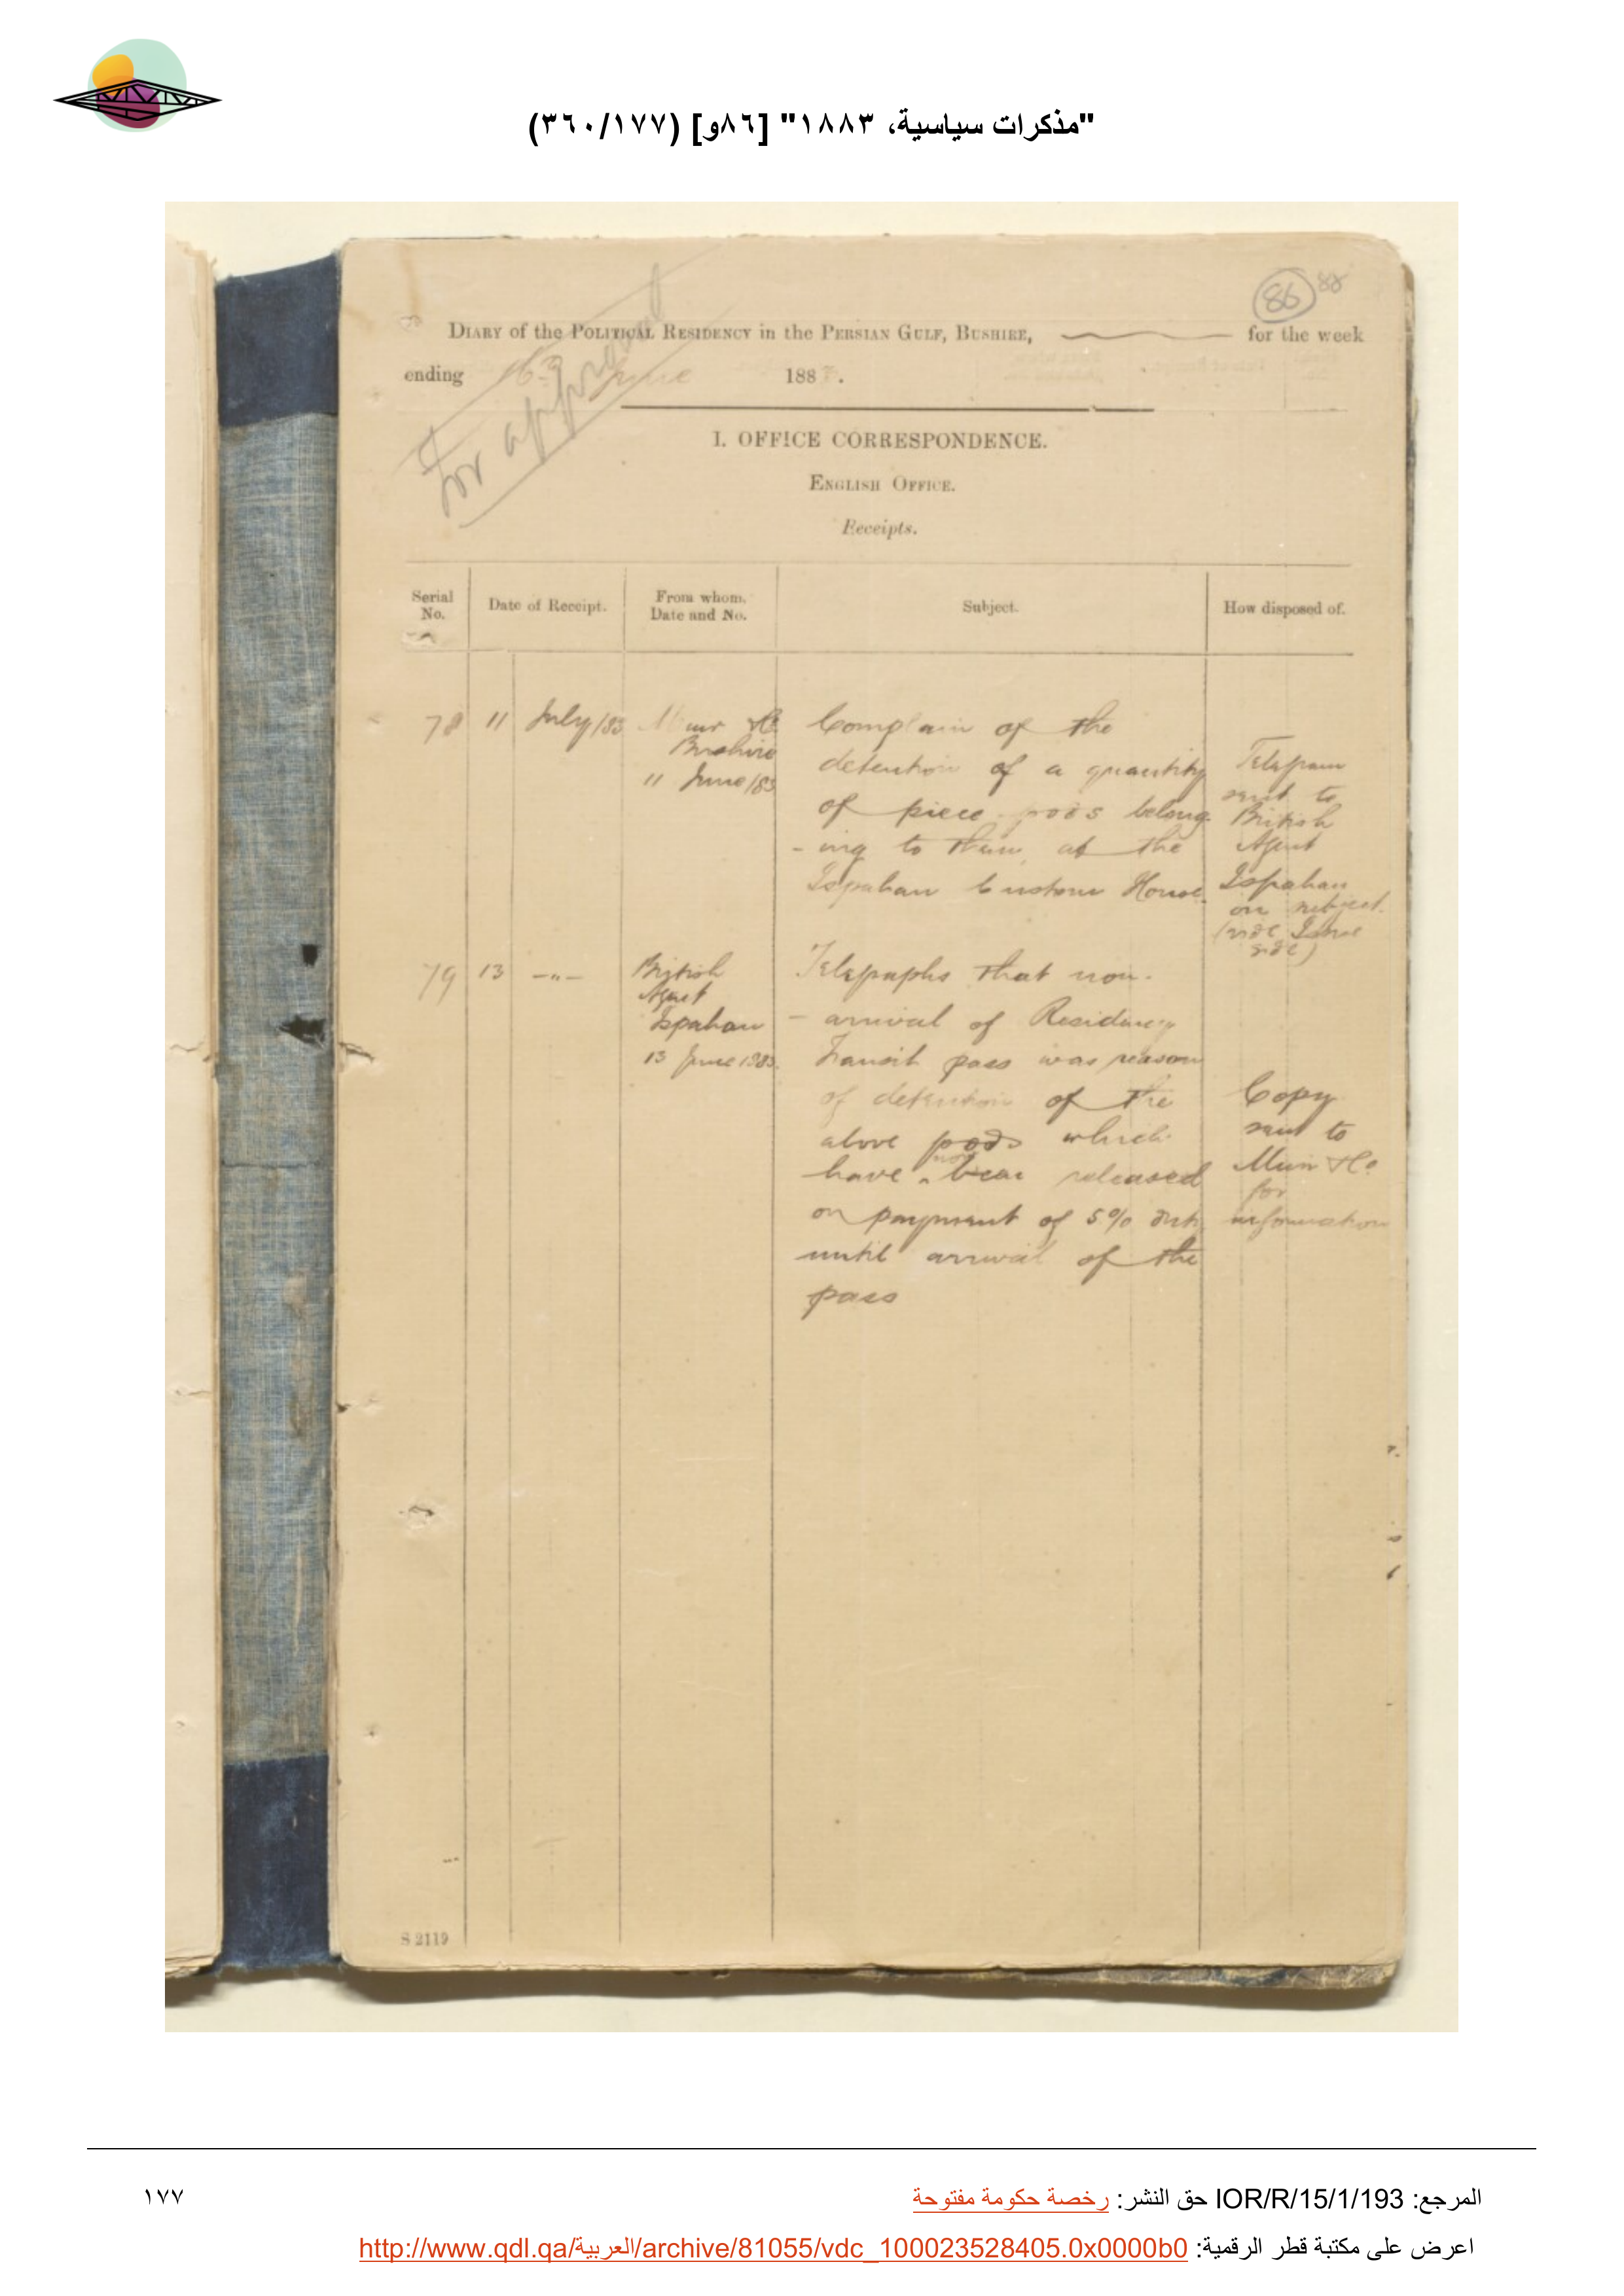 "مذكرات سياسية، ١٨٨٣" [٨٦و] (٣٦٠/١٧٧)
86 88
For approval
DIARY of the POLITICAL RESIDENCY in the PERSIAN GULF, BUSHIRE, for the week
ending 16 June 188 .
I. OFFICE CORRESPONDENCE.
ENGLISH OFFICE.
Receipts.
Serial No.
Date of Receipt.
From whom, Date and No.
Subject.
How disposed of.
78 11 July/83
Muir & Co.
Bushire
11 June/83
Complain of the
detention of a quantity
of piece goods belong-
-ing to them at the
Ispahan Custom House.
Telegram
sent to
British
Agent
Ispahan
on subject.
(vide Issue
side)
79 13 -"-
British
Agent
Ispahan
13 June 1883.
Telegraphs that non-
- arrival of Residency
Transit pass was reason
of detention of the
above goods which
have now been released
on payment of 5% duty
until arrival of the
pass
Copy
sent to
Muir & Co.
for
information
S 2119
المرجع: IOR/R/15/1/193 حق النشر: رخصة حكومة مفتوحة
١٧٧
اعرض على مكتبة قطر الرقمية: http://www.qdl.qa/العربية/archive/81055/vdc_100023528405.0x0000b0